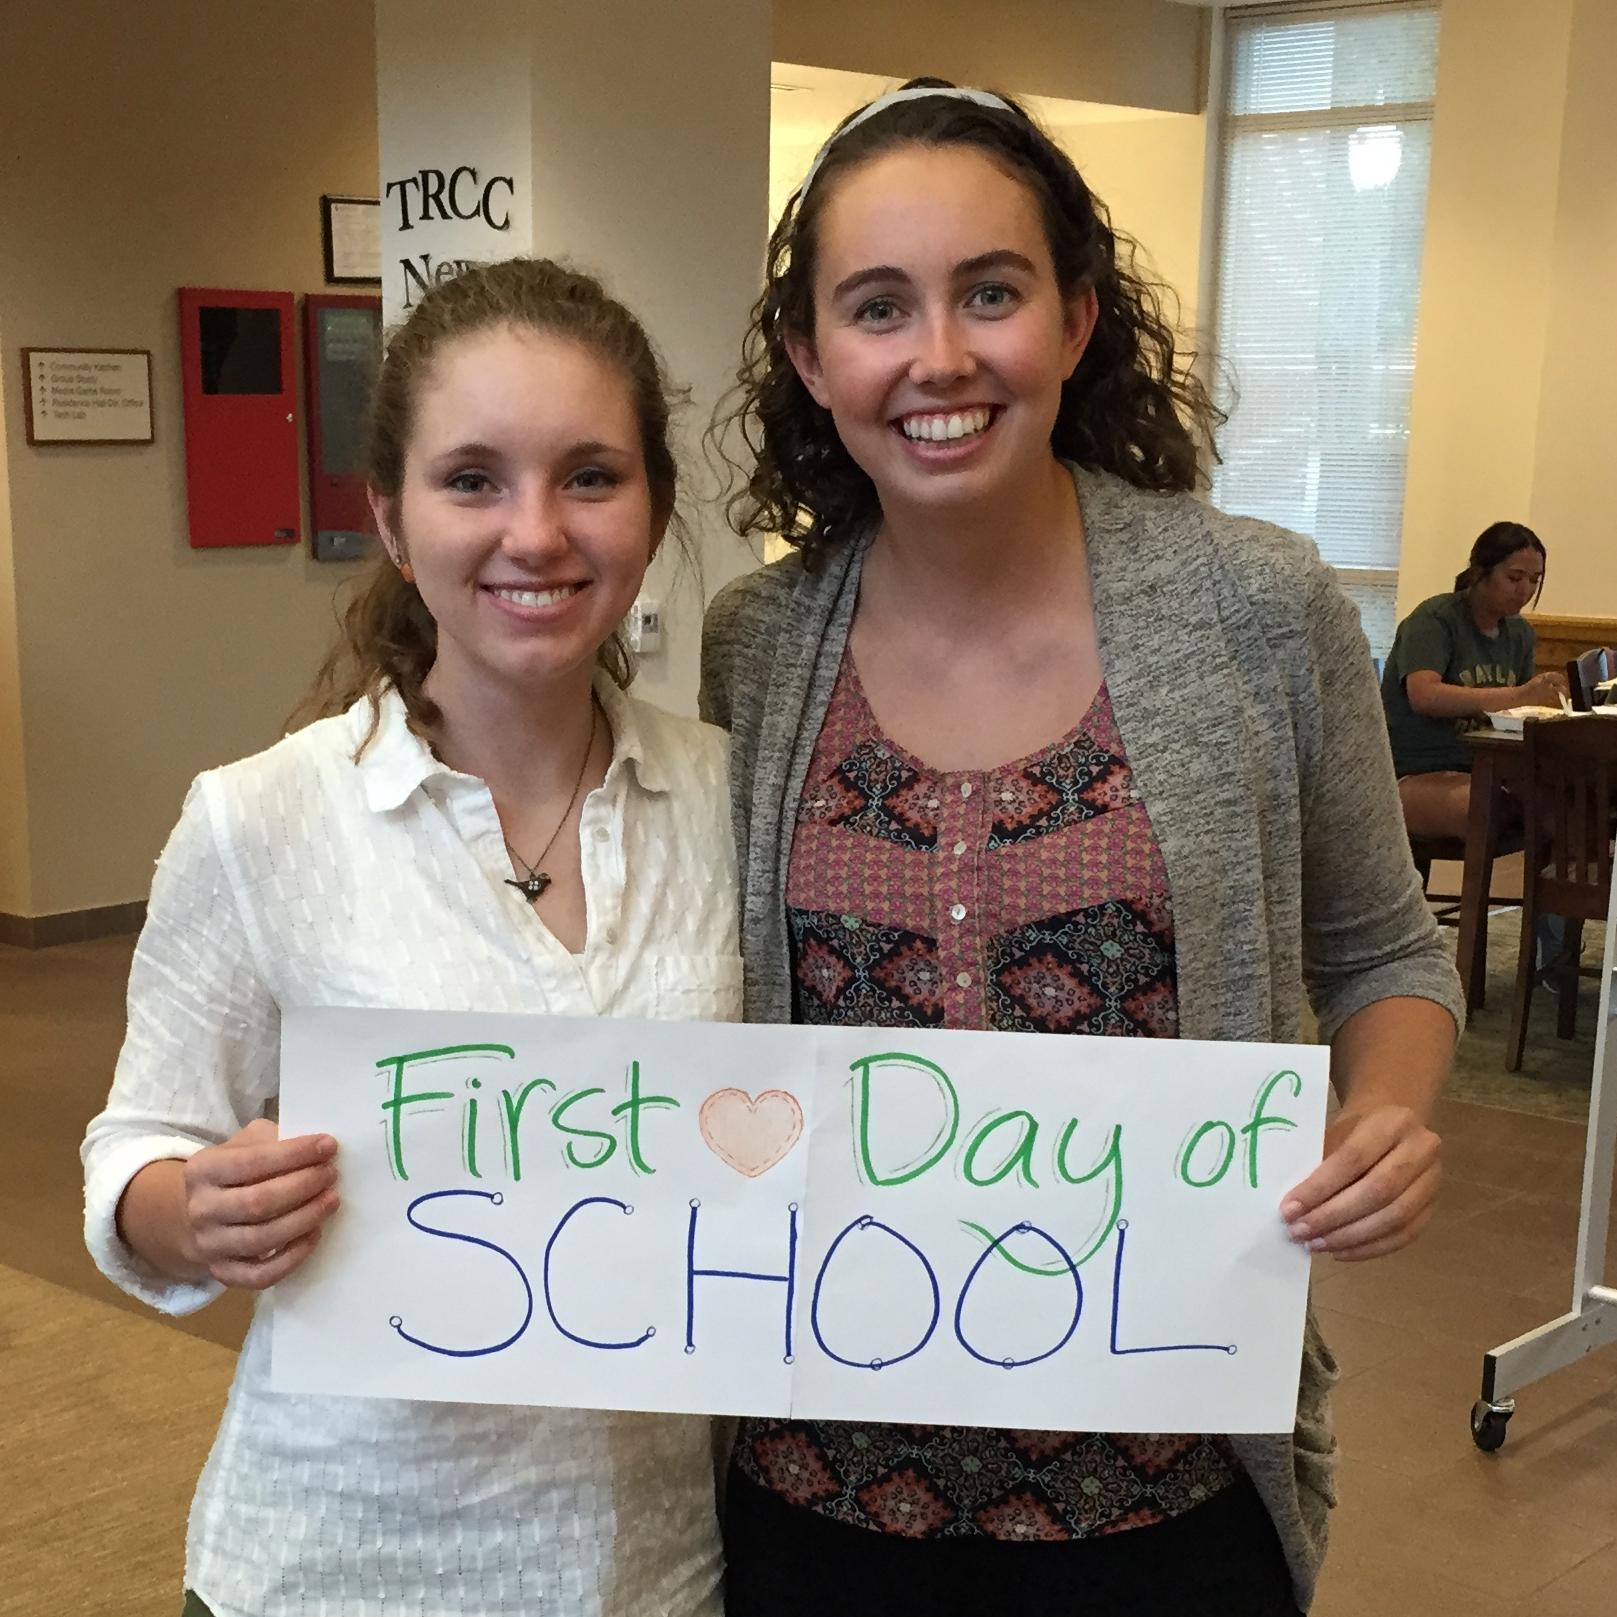 TRCC
Community Kitchen
Group Study
Media/Game Room
Residence Hall Dir. Office
Tech Lab
First Day of
SCHOOL